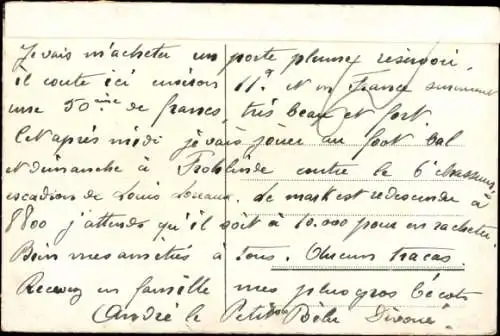 Je vais m'acheter un porte plume reservoir,
il coute ici environ 11f et en France surement
une 50aine de francs, très beau et fort.
Cet après midi je vais jouer au foot bal
et dimanche à Frohlinde contre le 6e chasseurs, à
escadron de Louis . Le mark est redescendu à
8800 j'attends qu'il soit à 10.000 pour en racheter.
Bien mes amitiés à tous. Aucun tracas.
Recevez en famille mes plus gros bécots
André le Petit Bébé